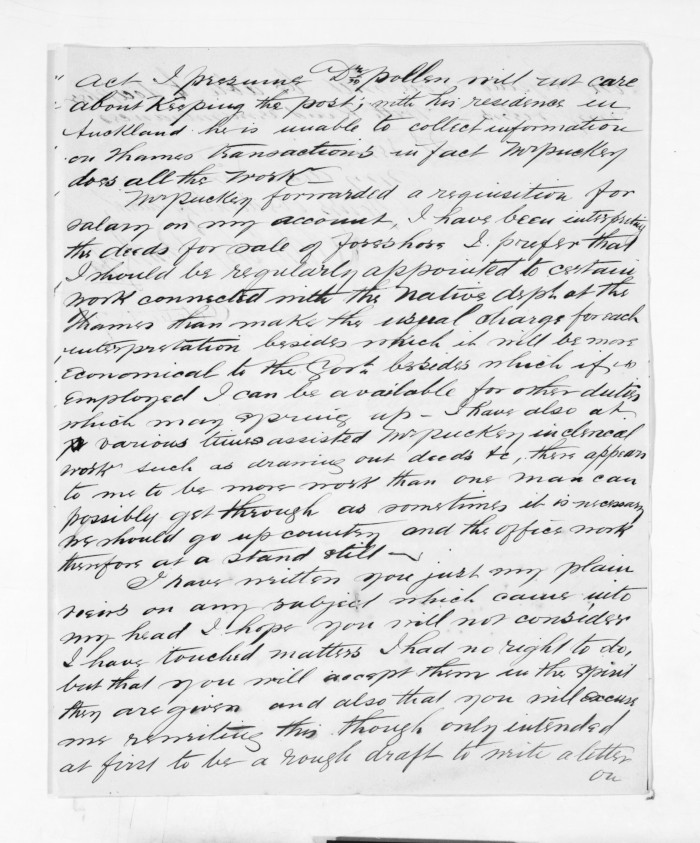 act I presume Dr. pollen will not care
about Keeping the post; with his residence in
Auckland he is unable to collect information
on Thames transactions in fact Mr puckey
does all the work –
Mr puckey forwarded a requisition for
salary on my account, I have been interpreting
the deeds for sale of foreshore I prefer that
I should be regularly appointed to certain
work connected with the Native dept. at the
Thames than make the usual charge for each
interpretation besides which it will be more
economical to the Govt. besides which if so
employed I can be available for other duties
which may spring up – I have also at
various times assisted Mr puckey in clerical
work such as drawing out deeds &c, there appears
to me to be more work than one man can
possibly get through as sometimes it is necessary
we should go up country and the office work
therefore at a stand still –
I have written you just my plain
views on any subject which came into
my head I hope you will not consider
I have touched matters I had no right to do,
but that you will accept them in the spirit
they are given and also that you will excuse
me rewriting this though only intended
at first to be a rough draft to write a letter
on